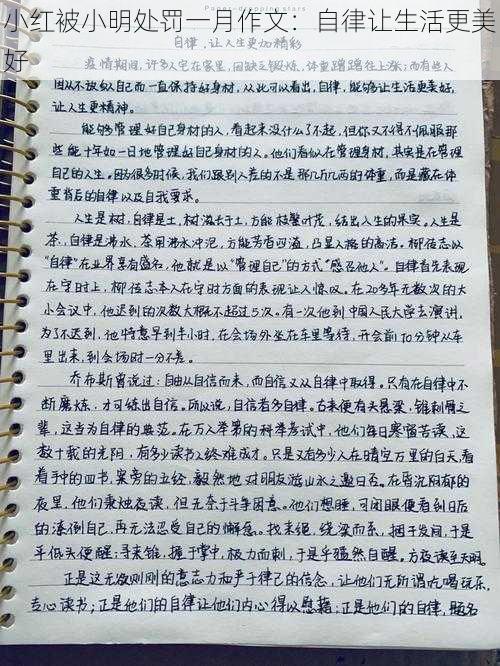 小红被小明处罚一月作文：自律让生活更美
好
Paper's stories
自律，让人生更加精彩
疫情期间，许多人宅在家里，因缺乏锻炼，体重蹭蹭往上涨；而有些人
因从不放纵自而一直保持好身材，从此可以看出，自律，能够让生活更美好，
让人生更精神。
能够管理好自己身材的人，看起来没什么了不起，但你又不得不佩服那
些能十年如一日地管理好自己身材的人。他们看似在管理身材，其实是在管理
自己的人生。因为很多时候，我们跟别人差的不是那几斤几两的体重，而是藏在体
重背后的自律以及自我要求。
人生是树，自律是土，树滋长于土，方能枝繁叶茂，结出人生的果实。人生是
茶，自律是沸水，茶用沸水冲泡，方能芳香四溢，凸显人格的高洁。柳传志以
“自律”在业界享有盛名，他就是以“管理自己”的方式“感召他人”。自律首先表现
在守时上，柳传志本人在守时方面的表现让人惊叹。在20多年无数次的大
小会议中，他迟到的次数大概不超过5次。有一次他到中国人民大学去演讲，
为了不迟到，他特意早到半小时，在会场外坐在车里等待，开会前10分钟从车
里出来，到会场时一分不差。
乔布斯曾说过：自由从自信而来，而自信又从自律中取得。只有在自律中不
断磨炼，才可练出自信。所以说，自信者多自律。古来便有头悬梁，锥刺骨之
辈，这当为自律的典范。在万人举第的科举考试中，他们每日寒窗苦读，这
数十载的光阴，有多少读书人终难成才。只是又有多少人在晴空万里的白天，看
着手中的四书，案旁的五经，毅然地对朋友游山水之邀曰否。在昏沉闷郁的
夜里，他们秉烛夜读，但无奈于斗争困意。他们想睡，可闭眼便看到日后
的潦倒自己，再无法忍受自己的懈怠。找来绳，绕梁而系，捆于发间，于是
乎低头便醒；寻来锥，握于掌中，极力而刺，于是乎猛然自醒。方夜读至天明。
正是这无欲则刚的意志力和严于律己的信念，让他们无所谓吃喝玩乐，
专心读书；正是他们的自律让他们内心得以慰藉；正是他们的自律，题名